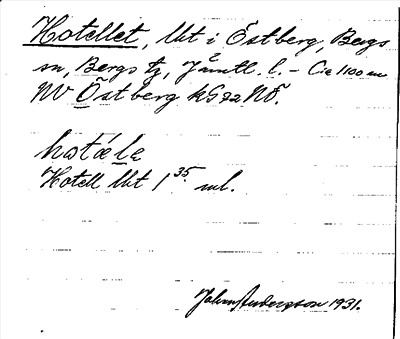 Hotellet, lht i Östberg, Bergs
sn, Bergs tg, Jämtl. l. – C:a 1100 m
NV Östberg kG 72 NÖ.
hotǽle
Hotell lht 1 35 ml.
John Andersson 1931.